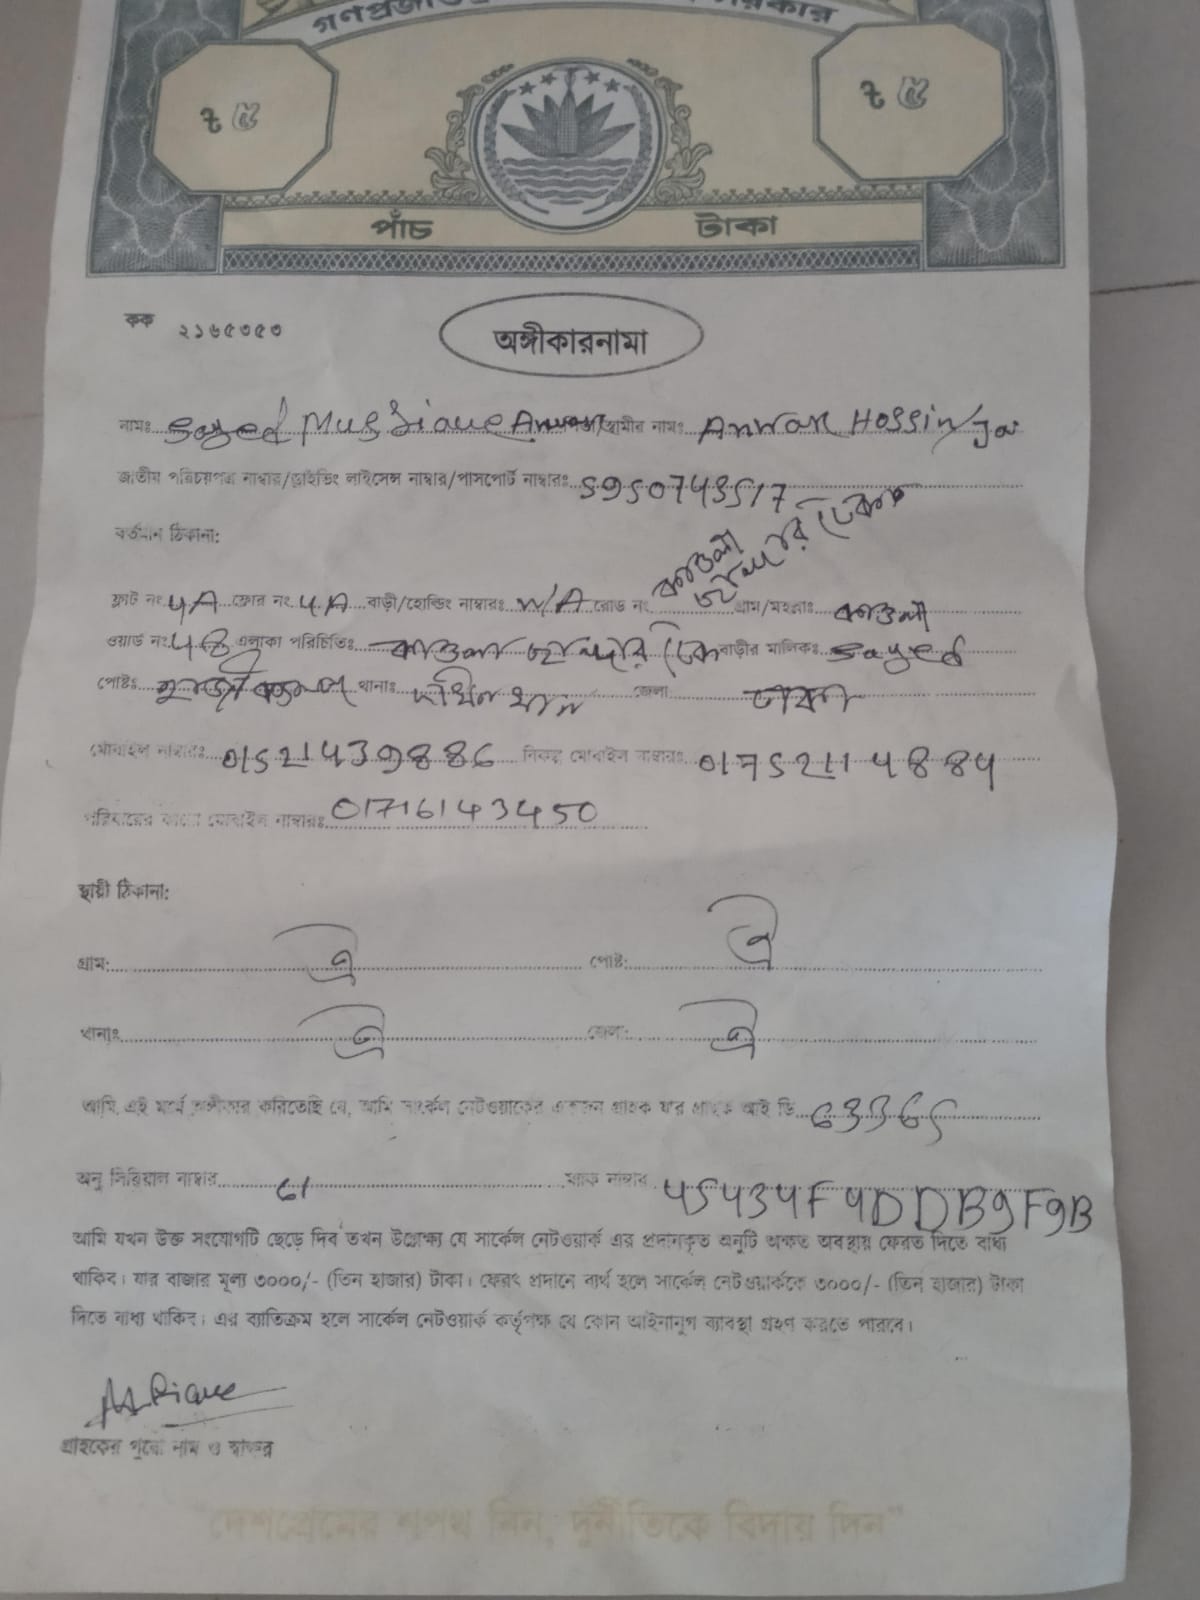 ৳ ৫ ৳ ৫
পাঁচ টাকা
কক ২১৬৫৩৫৩
অঙ্গীকারনামা
নামঃ Sayed Anwar স্বামীর নামঃ Anwar Hossin
জাতীয় পরিচয়পত্র নাম্বার/ড্রাইভিং লাইসেন্স নাম্বার/পাসপোর্ট নাম্বারঃ
বর্তমান ঠিকানা:
ফ্লাট নং 4A ফ্লোর নং 4A বাড়ী/হোল্ডিং নাম্বারঃ N/A রোড নং গ্রাম/মহল্লাঃ কাওলা
ওয়ার্ড নং এলাকা পরিচিতিঃ কাওলা বাড়ীর মালিকঃ Sayed
পোষ্টঃ থানাঃ দক্ষিনখান জেলা ঢাকা
মোবাইল নাম্বারঃ 01521439886 বিকল্প মোবাইল নাম্বারঃ 01752114884
পরিবারের কারো মোবাইল নাম্বারঃ 01716143450
স্থায়ী ঠিকানা:
গ্রাম: ঐ পোষ্ট: ঐ
থানাঃ ঐ জেলা: ঐ
আমি এই মর্মে অঙ্গীকার করিতেছি যে, আমি সার্কেল নেটওয়ার্কের একজন গ্রাহক যার গ্রাহক আই ডি
অনু সিরিয়াল নাম্বার ম্যাক নাম্বার 45434F4DDB9F9B
আমি যখন উক্ত সংযোগটি ছেড়ে দিব তখন উল্লেক্ষ্য যে সার্কেল নেটওয়ার্ক এর প্রদানকৃত অনুটি অক্ষত অবস্থায় ফেরত দিতে বাধ্য
থাকিব। যার বাজার মূল্য ৩০০০/- (তিন হাজার) টাকা। ফেরৎ প্রদানে ব্যর্থ হলে সার্কেল নেটওয়ার্ককে ৩০০০/- (তিন হাজার) টাকা
দিতে বাধ্য থাকিব। এর ব্যাতিক্রম হলে সার্কেল নেটওয়ার্ক কর্তৃপক্ষ যে কোন আইনানুগ ব্যাবস্থা গ্রহণ করতে পারবে।
গ্রাহকের পুরো নাম ও স্বাক্ষর
দেশপ্রেমের শপথ নিন, দুর্নীতিকে বিদায় দিন"